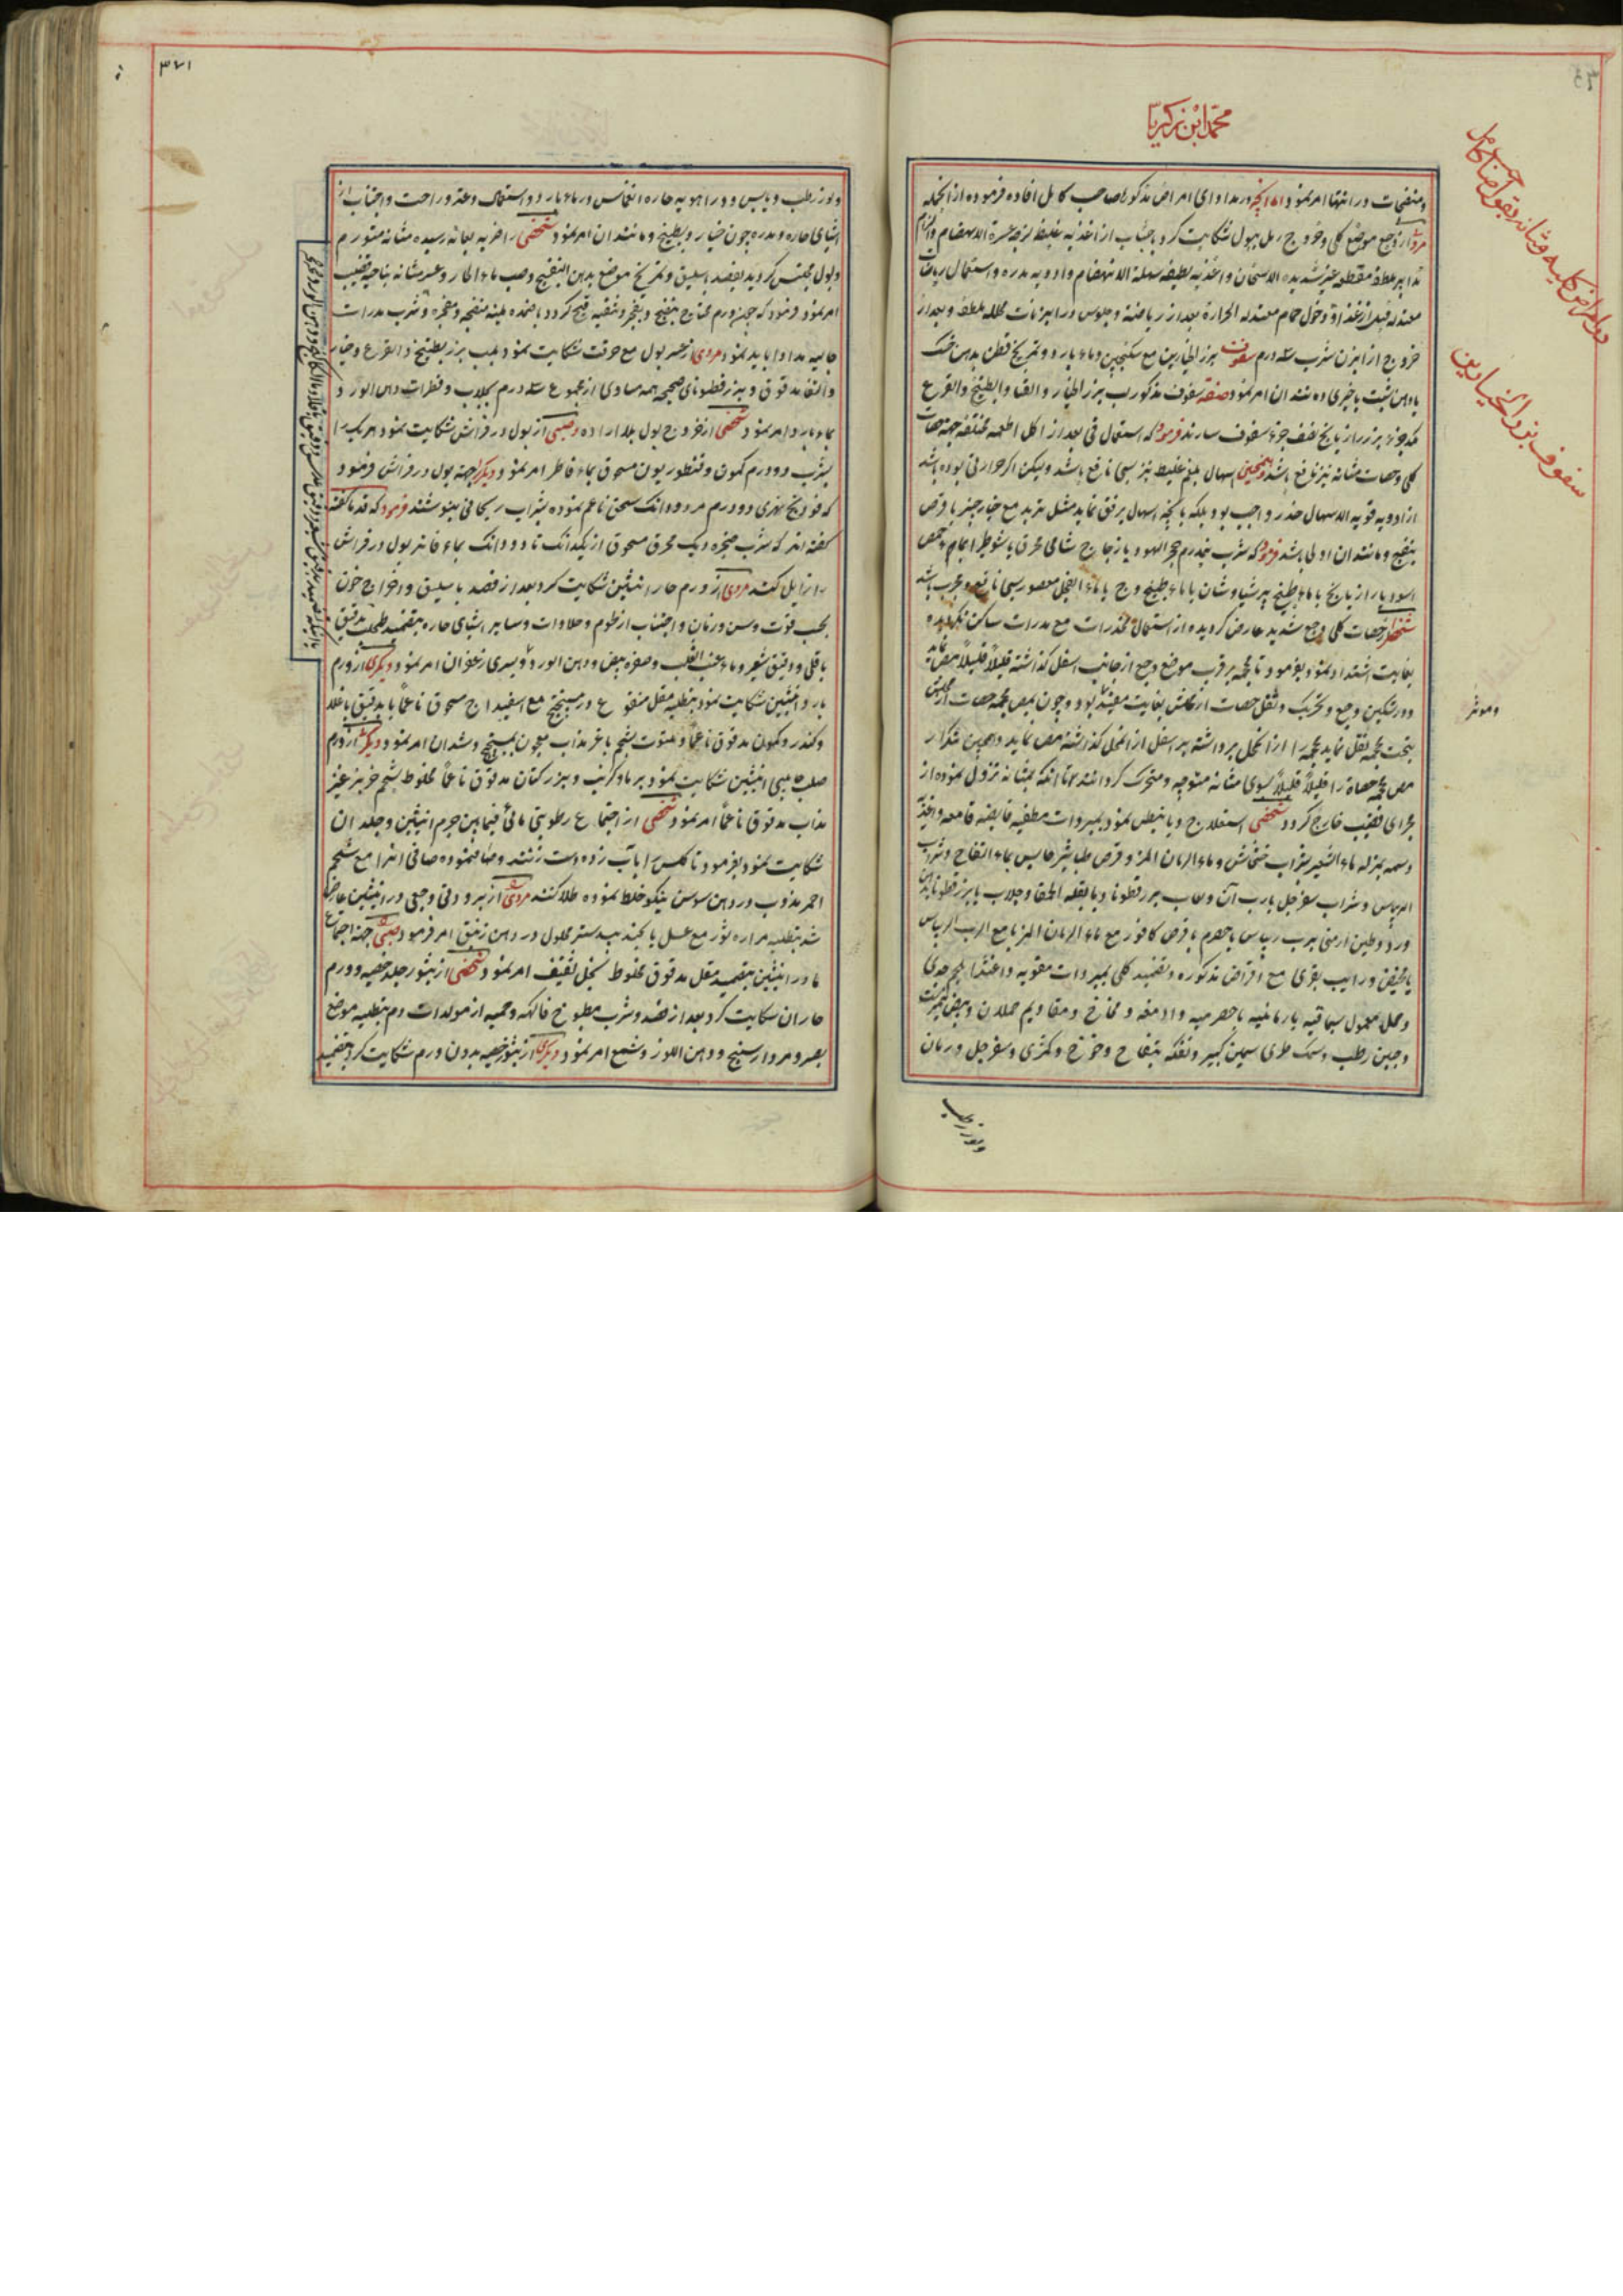 محمد ابن زکریا
و منضجات در انتها امر نمود اما آنچه در مداوای امراض مذکوره صاحب کامل افاده فرموده از انجمله
مردی از وجع موضع کلی و خروج رمل ببول شکایت کرد باجتناب از اغذیه غلیظ لزجه عسرة الانهضام و الزام
تدابیر ملطفه مقطعه غیر شدیده الاسخان و اغذیه لطیفه سهلة الانهضام و ادویه مدره و استعمال ریاضت
معتدله قبل از غذا و دخول حمام معتدلة الحرارة بعد از ریاضة و جلوس در ابزنات محلله ملطفه و بعد از
خروج از ابزن شرب سه درم سفوف بزر الخیارین مع سکنجبین و ماء بارد و تمریخ قطن بدهن خسک
یا دهن شبت یا خیری و مانند ان امر نمود صفة سفوف مذکور لب بزر الخیار و القثا و البطیخ و القرع
یکجزء بزر رازیانج نصف جزء سفوف سازند فرموده که استعمال قی بعد از اکل اطعمه مختلفه جهة حصات
کلی و حصات مثانه نیز نافع باشد و همچنین اسهال بلغم غلیظ نیز بسی نافع باشد ولیکن اگر حرارتی بوده باشد
از ادویه قویه الاسهال حذر واجب بود بلکه بآنچه اسهال برفق نماید مثل تربد مع خیارچنبر یا قرص
بنفسج و مانند ان اولی باشد فرموده که شرب نیمدرم حجر الیهود یا زجاج شامی محرق
اسود یا رازیانج یا ماء طبیخ پرسیاوشان یا ماء طبیخ وج یا ماء الفجل معصور بسی نافع و مجرب باشد
شخصی را حصات کلی و وجع شدید عارض گردید و از استعمال مخدرات مع مدرات ساکن نگردید و
بغایت اشتداد نمود بفرمود تا محجمه بر قرب موضع وجع از جانب اسفل گذاشته قلیلاً قلیلاً مص نماید
و در تسکین وجع و تحریک و نقل حصات از مکانش بغایت مفید بود و چون بمص محجمه حصات از مکان
بتحت محجمه نقل نماید محجمه را از انمحل برداشته بر اسفل از انمحل گذاشته مص نماید و همچنین بتکرار
مص محجمه حصاة را قلیلاً قلیلاً بسوی مثانه متوجه و متحرک گردانند تا انکه بمثانه نزول نموده از
مجرای قضیب خارج گردد شخصی استعلاج دیابیطس نمود بمبردات مطفیه قابضه قامعه و اغذیه
دسمه بمنزله ماء الشعیر بشراب خشخاش و ماء الرمان المز و قرص طباشیر حابس بماء التفاح و شراب
الریباس و شراب سفرجل یا رب آن و لعاب بزر قطونا و یا بقلة الحمقا و جلاب یا بزر قطونا بدهن
ورد و طین ارمنی برب ریباس یا حصرم یا قرص کافور مع ماء الرمان المز یا مع الرب الریباس
یا مخیض رایب بقری مع اقراص مذکوره و تضمید کلی بمبردات مقویه و اغتذا بلحم جدی
و حمل معمول سماقیه یا رمانیه یا حصرمیه و ادمغه و مخاخ و مقادیم حملان و بیض نیمبرشت
و جبن رطب و سمک طری سمین کبیر و تفکه بتفاح و خوخ و کمثری و سفرجل و رمان
و لوز رطب
دوای امراض کلیه و مثانه بقول صاحب کامل
سفوف بزر الخیارین
و موثر
۳۷۱
و لوز رطب و یابس و در اهویه حاره انغماس در ماء بارد و استعمال دعة و راحت و اجتناب از
اشیای حاره و مدره چون خیار و بطیخ و مانند ان امر نمود شخصی را ضربه بعانه رسیده مثانه متورم
و بول محتبس گردید بفصد باسلیق و تمریخ موضع بدهن البنفسج و صب ماء الحار و عسر مثانه بناحیه قضیب
امر نمود و فرمود که چون ورم محتاج بنضج و تفجر و تنقیه قیح گردد باضمده ملینه منضجه و مفجره و شرب مدرات
جالیه مداوا باید نمود مردی از عسر بول مع حرقت شکایت نمود بلب بزر بطیخ و القرع و خیار
و القثا مدقوق و بزر قطونای صحیحه همه مساوی از مجموع سه درم بجلاب و قطرات دهن الورد و
بماء بارد امر نمود شخصی از خروج بول بلا اراده و صبیی از بول در فراش شکایت نمود هر یک را
بشرب دو درم کمون و قنطوریون مسحوق بماء فاطر امر نمود و دیگر جهة بول در فراش فرمود
که فودنج نهری دو درم مر دو دانک سحق ناعم نموده بشراب ریحانی بنوشند فرمود که قدما گفته
گفته اند که شرب حنجره دیک محرق مسحوق از یکدانک تا دو دانک بماء فاتر بول در فراش
را زایل کند مردی از ورم حار انثیین شکایت کرد بعد از فصد باسلیق و اخراج خون
بحسب قوت و سن و زمان و اجتناب از لحوم و حلاوات و سایر اشیای حاره بتضمید طحلب بدقیق
باقلی و دقیق شعیر و ماء عنب الثعلب و صفره بیض و دهن الورد و یسیری زعفران امر نمود دیگری از ورم
بارد انثیین شکایت نمود بتطلیه مقل منقوع در میبختج مع اسفیداج مسحوق ناعماً یا بدقیق باقلا
و کندر و کمون مدقوق ناعماً و ملتوت بشحم یا غز مذاب معجون بمیبختج و مانند ان امر نمود دیگر از ورم
صلب جاسی انثیین شکایت نمود برماد کرنب و بزر کتان مدقوق ناعماً مخلوط بشحم
مذاب مدقوق ناعماً امر نمود شخصی از اجتماع رطوبتی مائی فیمابین جرم انثیین و جلد ان
شکایت نمود بفرمود تا کلس را بآب زده دست زنند و صاف نموده صافی انرا مع شحم
احمر مذوب در دهن سوسن نیکو خلط نموده طلا کنند مردی را از برودتی وجعی در انثیین عارض
شد بتطلیه مراره ثور مع عسل یا بجندبیدستر محلول در دهن زنبق امر فرمود صبیی جهة اجتماع
ما در انثیین بتضمید مقل مدقوق مخلوط بخل ثقیف امر نمود شخصی از بثور جلد خصیه و ورم
حار ان شکایت کرد بعد از فصد و شرب مطبوخ فاکهه و حمیه از مولدات دم بتطلیه موضع
بصبر و مردارسنج و دهن اللوز و شمع امر نمود دیگری از بثور خصیه بدون ورم شکایت کرد بتضمید